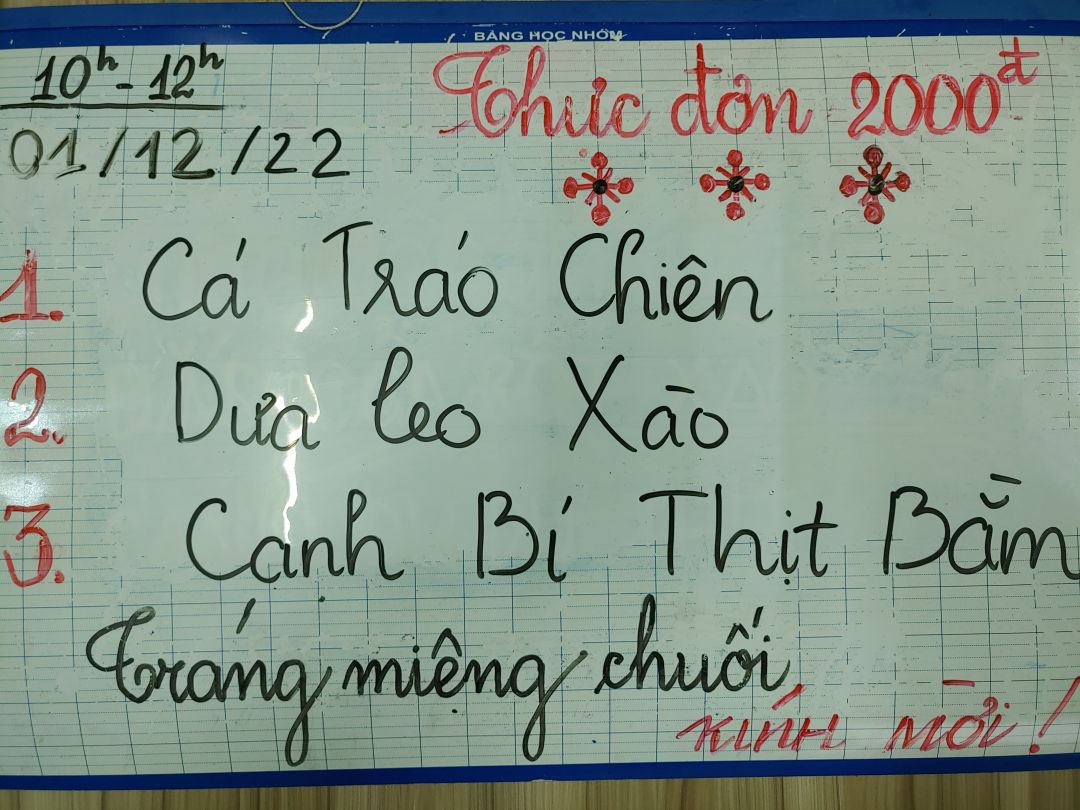 BẢNG HỌC NHÓM
10h - 12h
Thực đơn 2000đ
01/12/22
1. Cá Tráo Chiên
2. Dưa leo Xào
3. Canh Bí Thịt Bằm
Tráng miệng chuối
KÍNH MỜI!